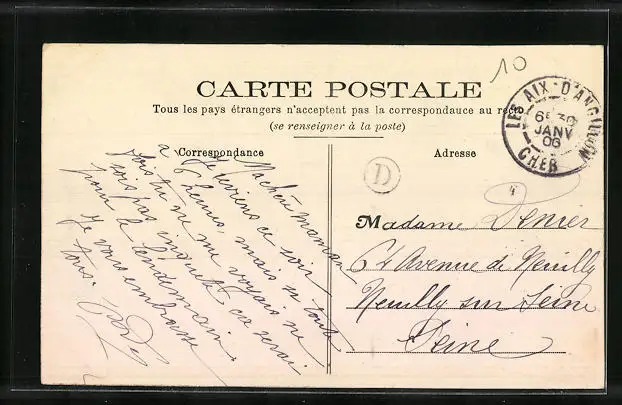 10
CARTE POSTALE
Tous les pays étrangers n'acceptent pas la correspondauce au recto
(se renseigner à la poste)
Correspondance
Ma chère maman
J'arriverai ce soir
à 6 heures, mais si toute
fois tu ne me voyais ne
sois pas inquiète ce serai
pour le lendemain.
Je vous embrasse
tous.
Adresse
D
Madame Denier
62 Avenue de Neuilly
Neuilly sur Seine
Seine
LES AIX-D'ANGILLON
6E 30
JANV
06
CHER